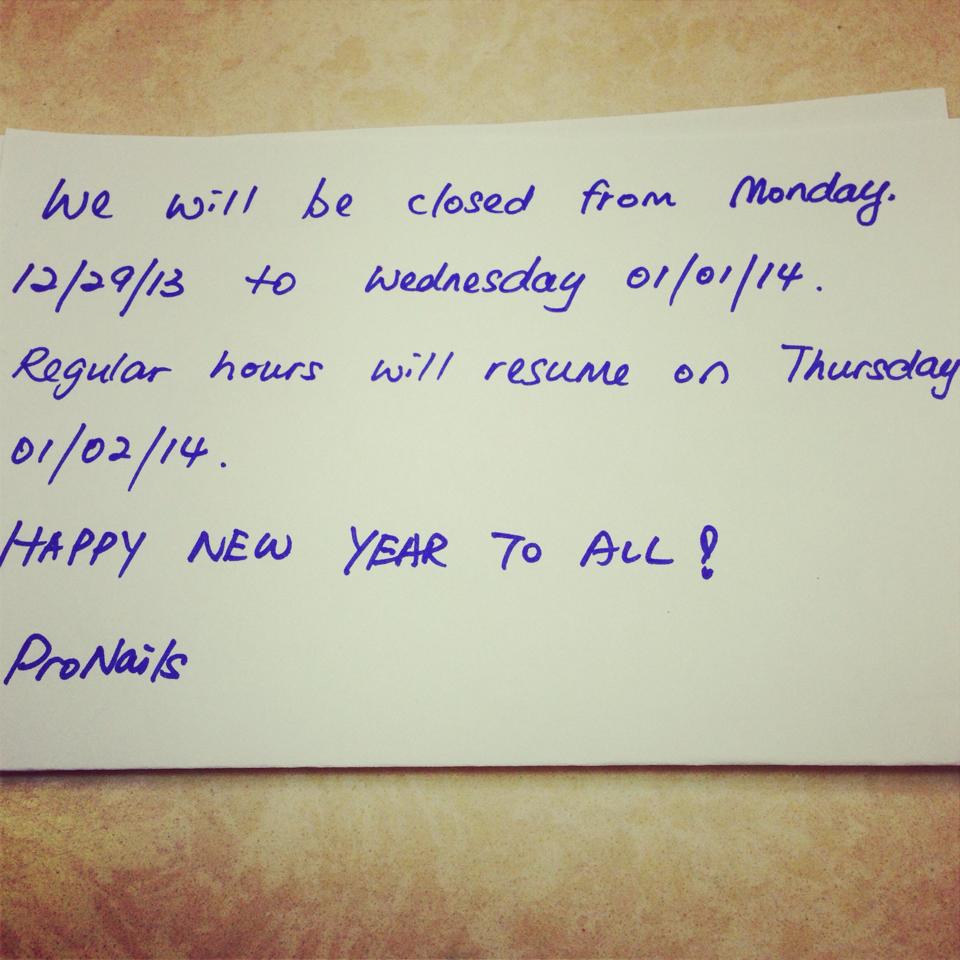 We will be closed from Monday.
12/29/13 to Wednesday 01/01/14.
Regular hours will resume on Thursday
01/02/14.
HAPPY NEW YEAR TO ALL!
ProNails